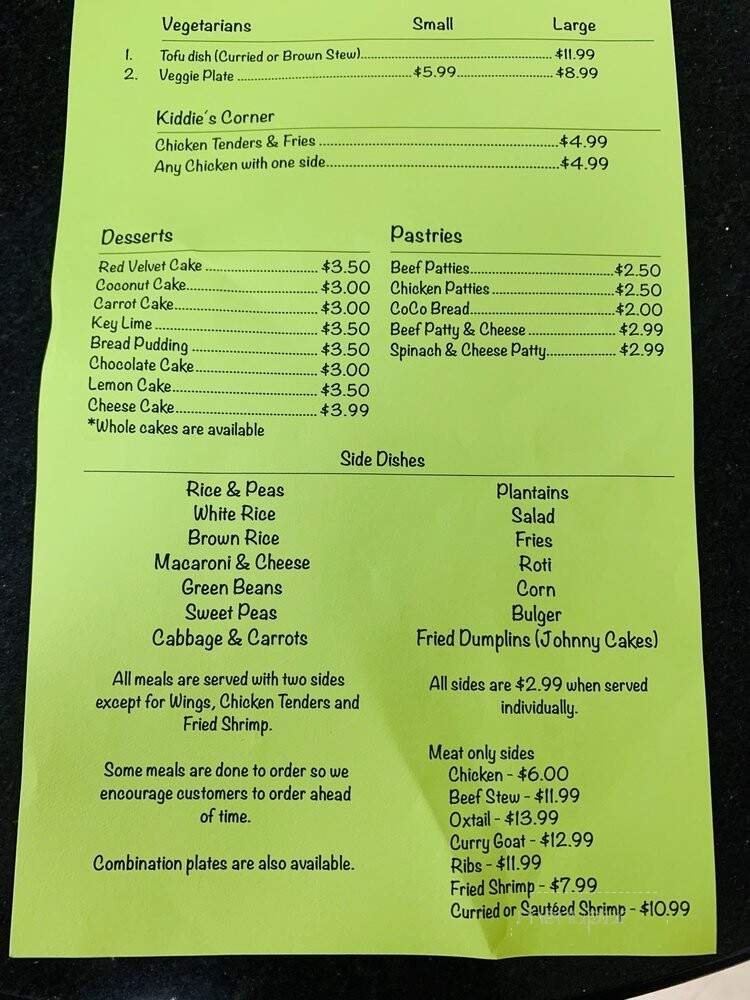 Vegetarians Small Large
1. Tofu dish (Curried or Brown Stew)........ $11.99
2. Veggie Plate ........$5.99........ $8.99
Kiddie's Corner
Chicken Tenders & Fries ........$4.99
Any Chicken with one side........$4.99
Desserts
Red Velvet Cake ........ $3.50
Coconut Cake........ $3.00
Carrot Cake........ $3.00
Key Lime ........ $3.50
Bread Pudding ........ $3.50
Chocolate Cake........ $3.00
Lemon Cake........ $3.50
Cheese Cake........ $3.99
*Whole cakes are available
Pastries
Beef Patties........$2.50
Chicken Patties ........$2.50
CoCo Bread........$2.00
Beef Patty & Cheese ........ $2.99
Spinach & Cheese Patty........ $2.99
Side Dishes
Rice & Peas
White Rice
Brown Rice
Macaroni & Cheese
Green Beans
Sweet Peas
Cabbage & Carrots
Plantains
Salad
Fries
Roti
Corn
Bulger
Fried Dumplins (Johnny Cakes)
All meals are served with two sides
except for Wings, Chicken Tenders and
Fried Shrimp.
Some meals are done to order so we
encourage customers to order ahead
of time.
Combination plates are also available.
All sides are $2.99 when served
individually.
Meat only sides
Chicken - $6.00
Beef Stew - $11.99
Oxtail - $13.99
Curry Goat - $12.99
Ribs - $11.99
Fried Shrimp - $7.99
Curried or Sautéed Shrimp - $10.99